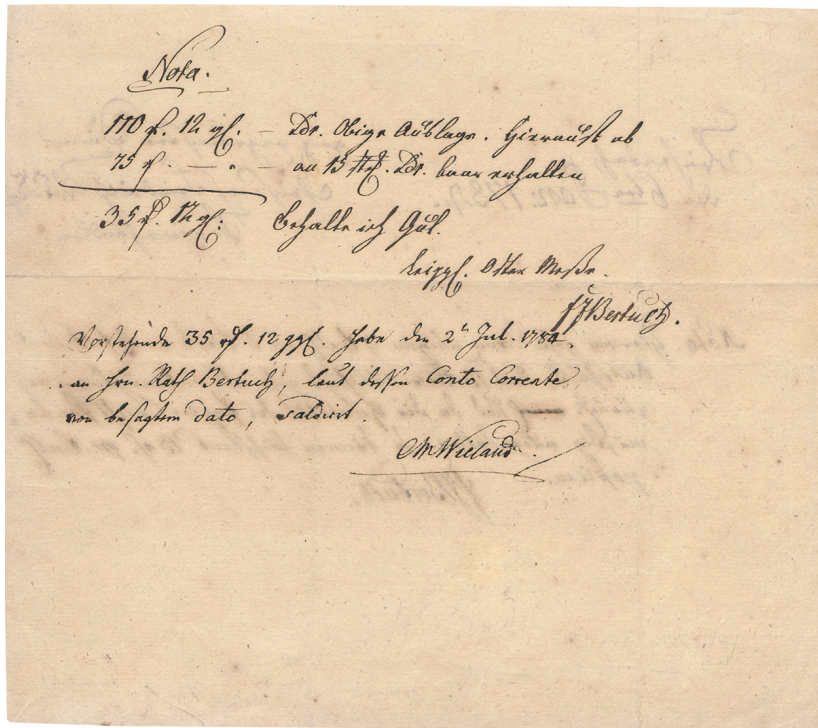 Nota.
110 rh. 12 gl. — Ldr. Obige Auslage. Hierauf ab
75 rh. — " — an 15 St. Ldr. baar erhalten
35 rh. 12 gl: behalte ich Gut.
Leipzg. Oster Messe.
FJBertuch.
Vorstehende 35 rh. 12 ggl. habe den 2t Jul. 1784.
an Hrn. Rath Bertuch, laut dessen Conto Corrente
von besagtem dato, saldirt.
CMWieland.